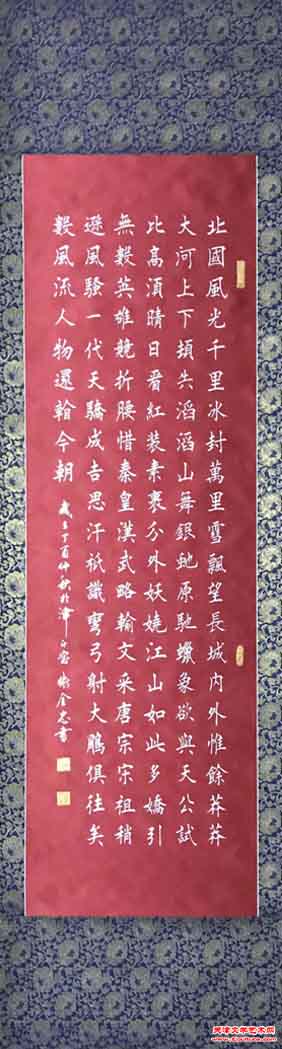 北國風光千里冰封萬里雪飄望長城内外惟餘莽莽
大河上下頓失滔滔山舞銀虵原馳蠟象欲與天公試
比髙湏晴日㸔紅装素裹分外妖嬈江山如此多嬌引
無數英雄競折腰惜秦皇漢武略輸文采唐宗宋祖稍
遜風騷一代天驕成吉思汗祇識彎弓射大鵰俱往矣
數風流人物還輸今朝
歲在丁酉仲秋於津 金忠書
天津文学艺术网